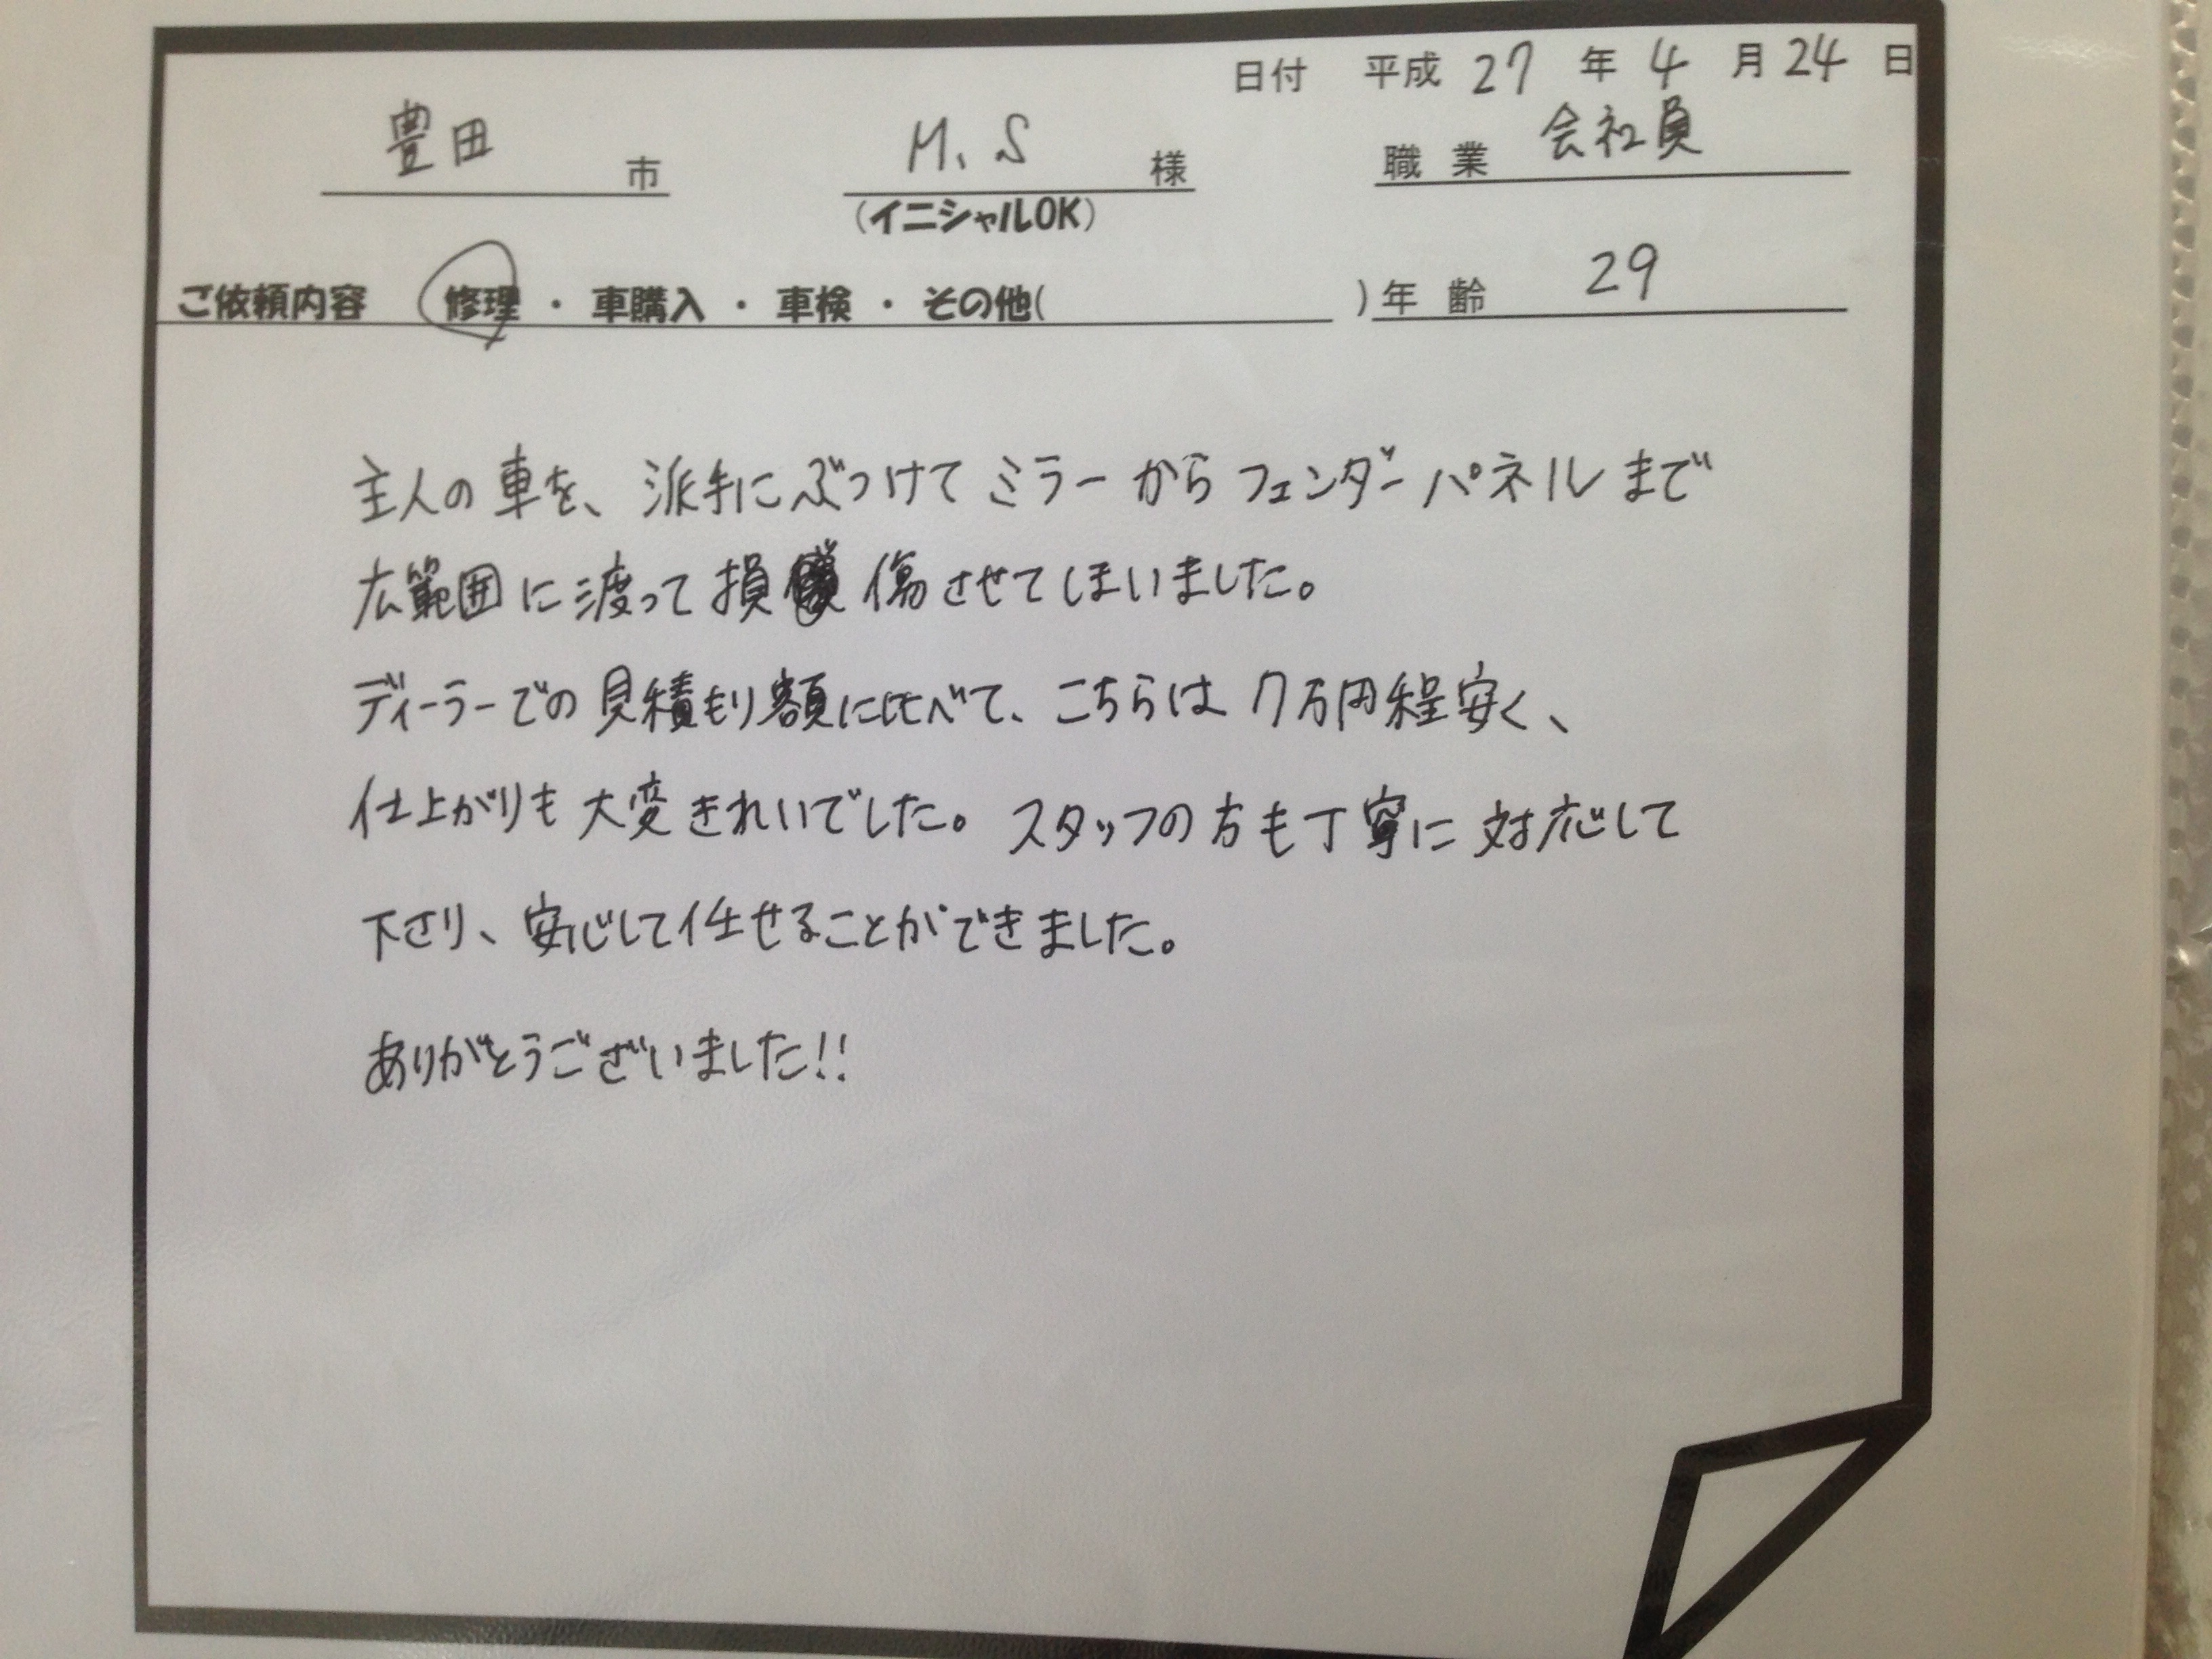 日付 平成 27 年 4 月 24 日
豊田 市 M.S 様 職業 会社員
(イニシャルOK)
ご依頼内容 修理・車購入・車検・その他( ) 年齢 29
主人の車を、派手にぶつけてミラーからフェンダーパネルまで
広範囲に渡って損傷させてしまいました。
ディーラーでの見積もり額に比べて、こちらは7万円程安く、
仕上がりも大変きれいでした。スタッフの方も丁寧に対応して
下さり、安心して任せることができました。
ありがとうございました!!